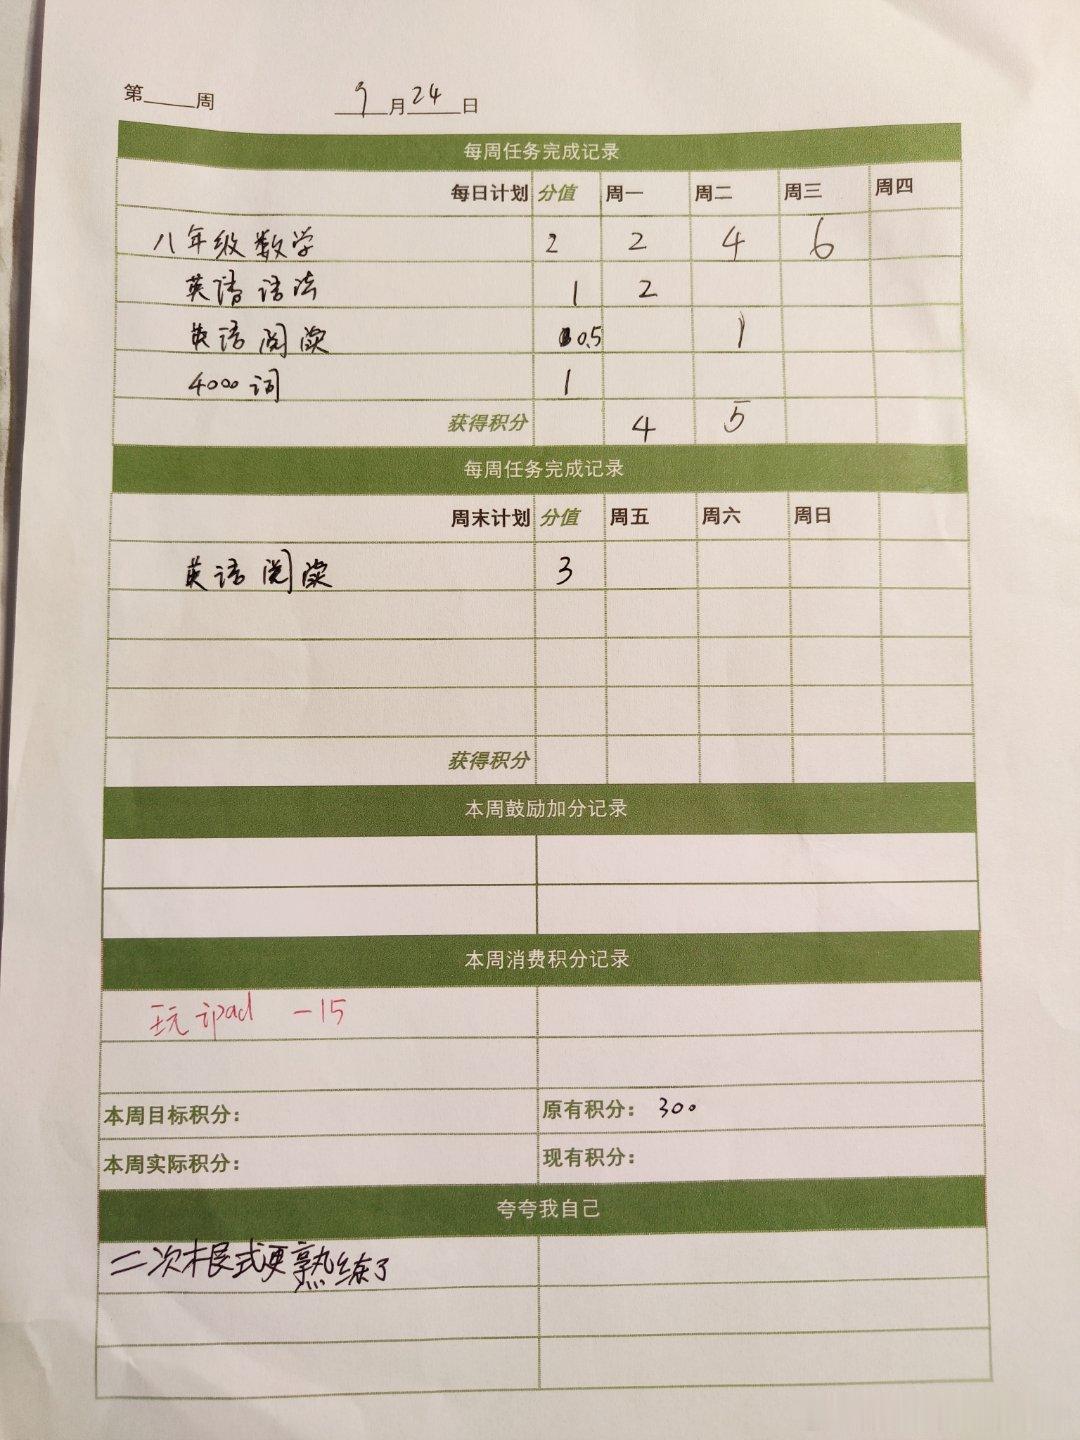 第____周 9月24日
每周任务完成记录
每日计划 分值 周一 周二 周三 周四
八年级数学 2 2 4 6
英语语法 1 2
英语阅读 0.5 1
4000词 1
获得积分 4 5
每周任务完成记录
周末计划 分值 周五 周六 周日
英语阅读 3
获得积分
本周鼓励加分记录
本周消费积分记录
玩ipad -15
本周目标积分: 原有积分: 300
本周实际积分: 现有积分:
夸夸我自己
二次根式更熟练了